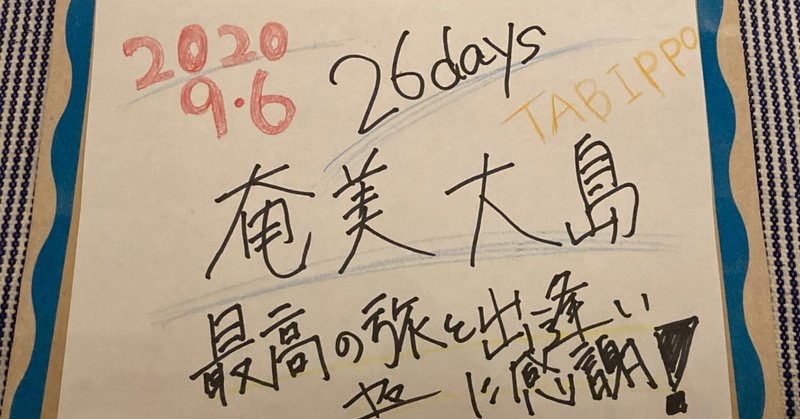 2020 26days TABIPPO
9・6
奄美大島
最高の旅と出逢い
に感謝!